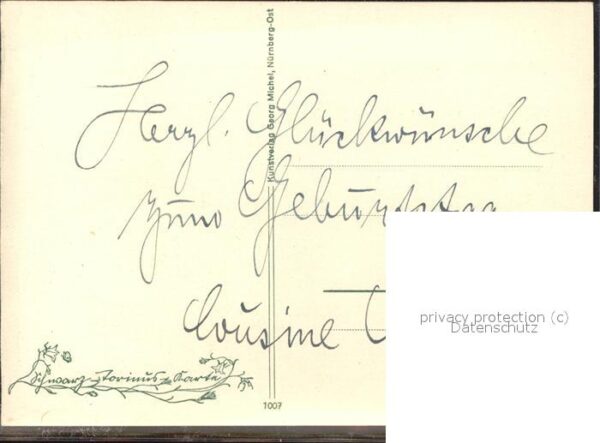 Herzl. Glückwünsche
zum Geburtstag
Cousine
Kunstverlag Georg Michel, Nürnberg-Ost
privacy protection (c)
Datenschutz
Schwarz-Torinus-Karte
1007